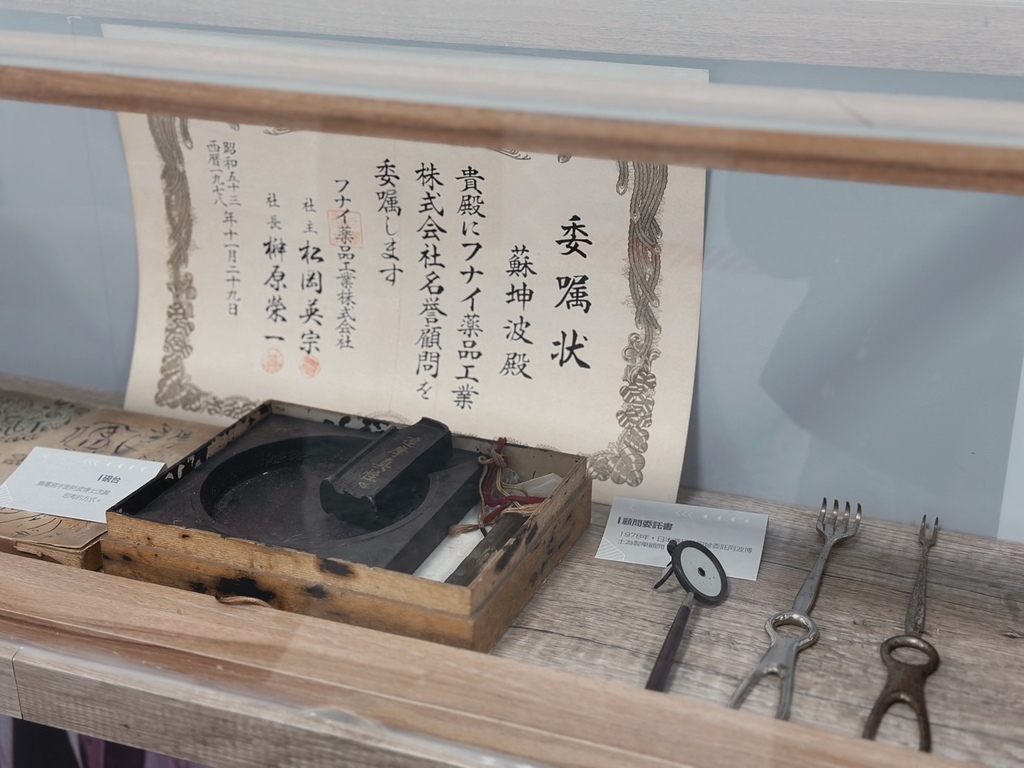 委嘱状
蘇坤波殿
貴殿にフナイ薬品工業
株式会社名誉顧問を
委嘱します
フナイ薬品工業株式会社
社主 松岡英宗
社長 榊原栄一
昭和五十三年十一月二十九日
西暦一九七八
硯台
顧問委託書
1978年,日本
委託阿波博
士為製藥顧問